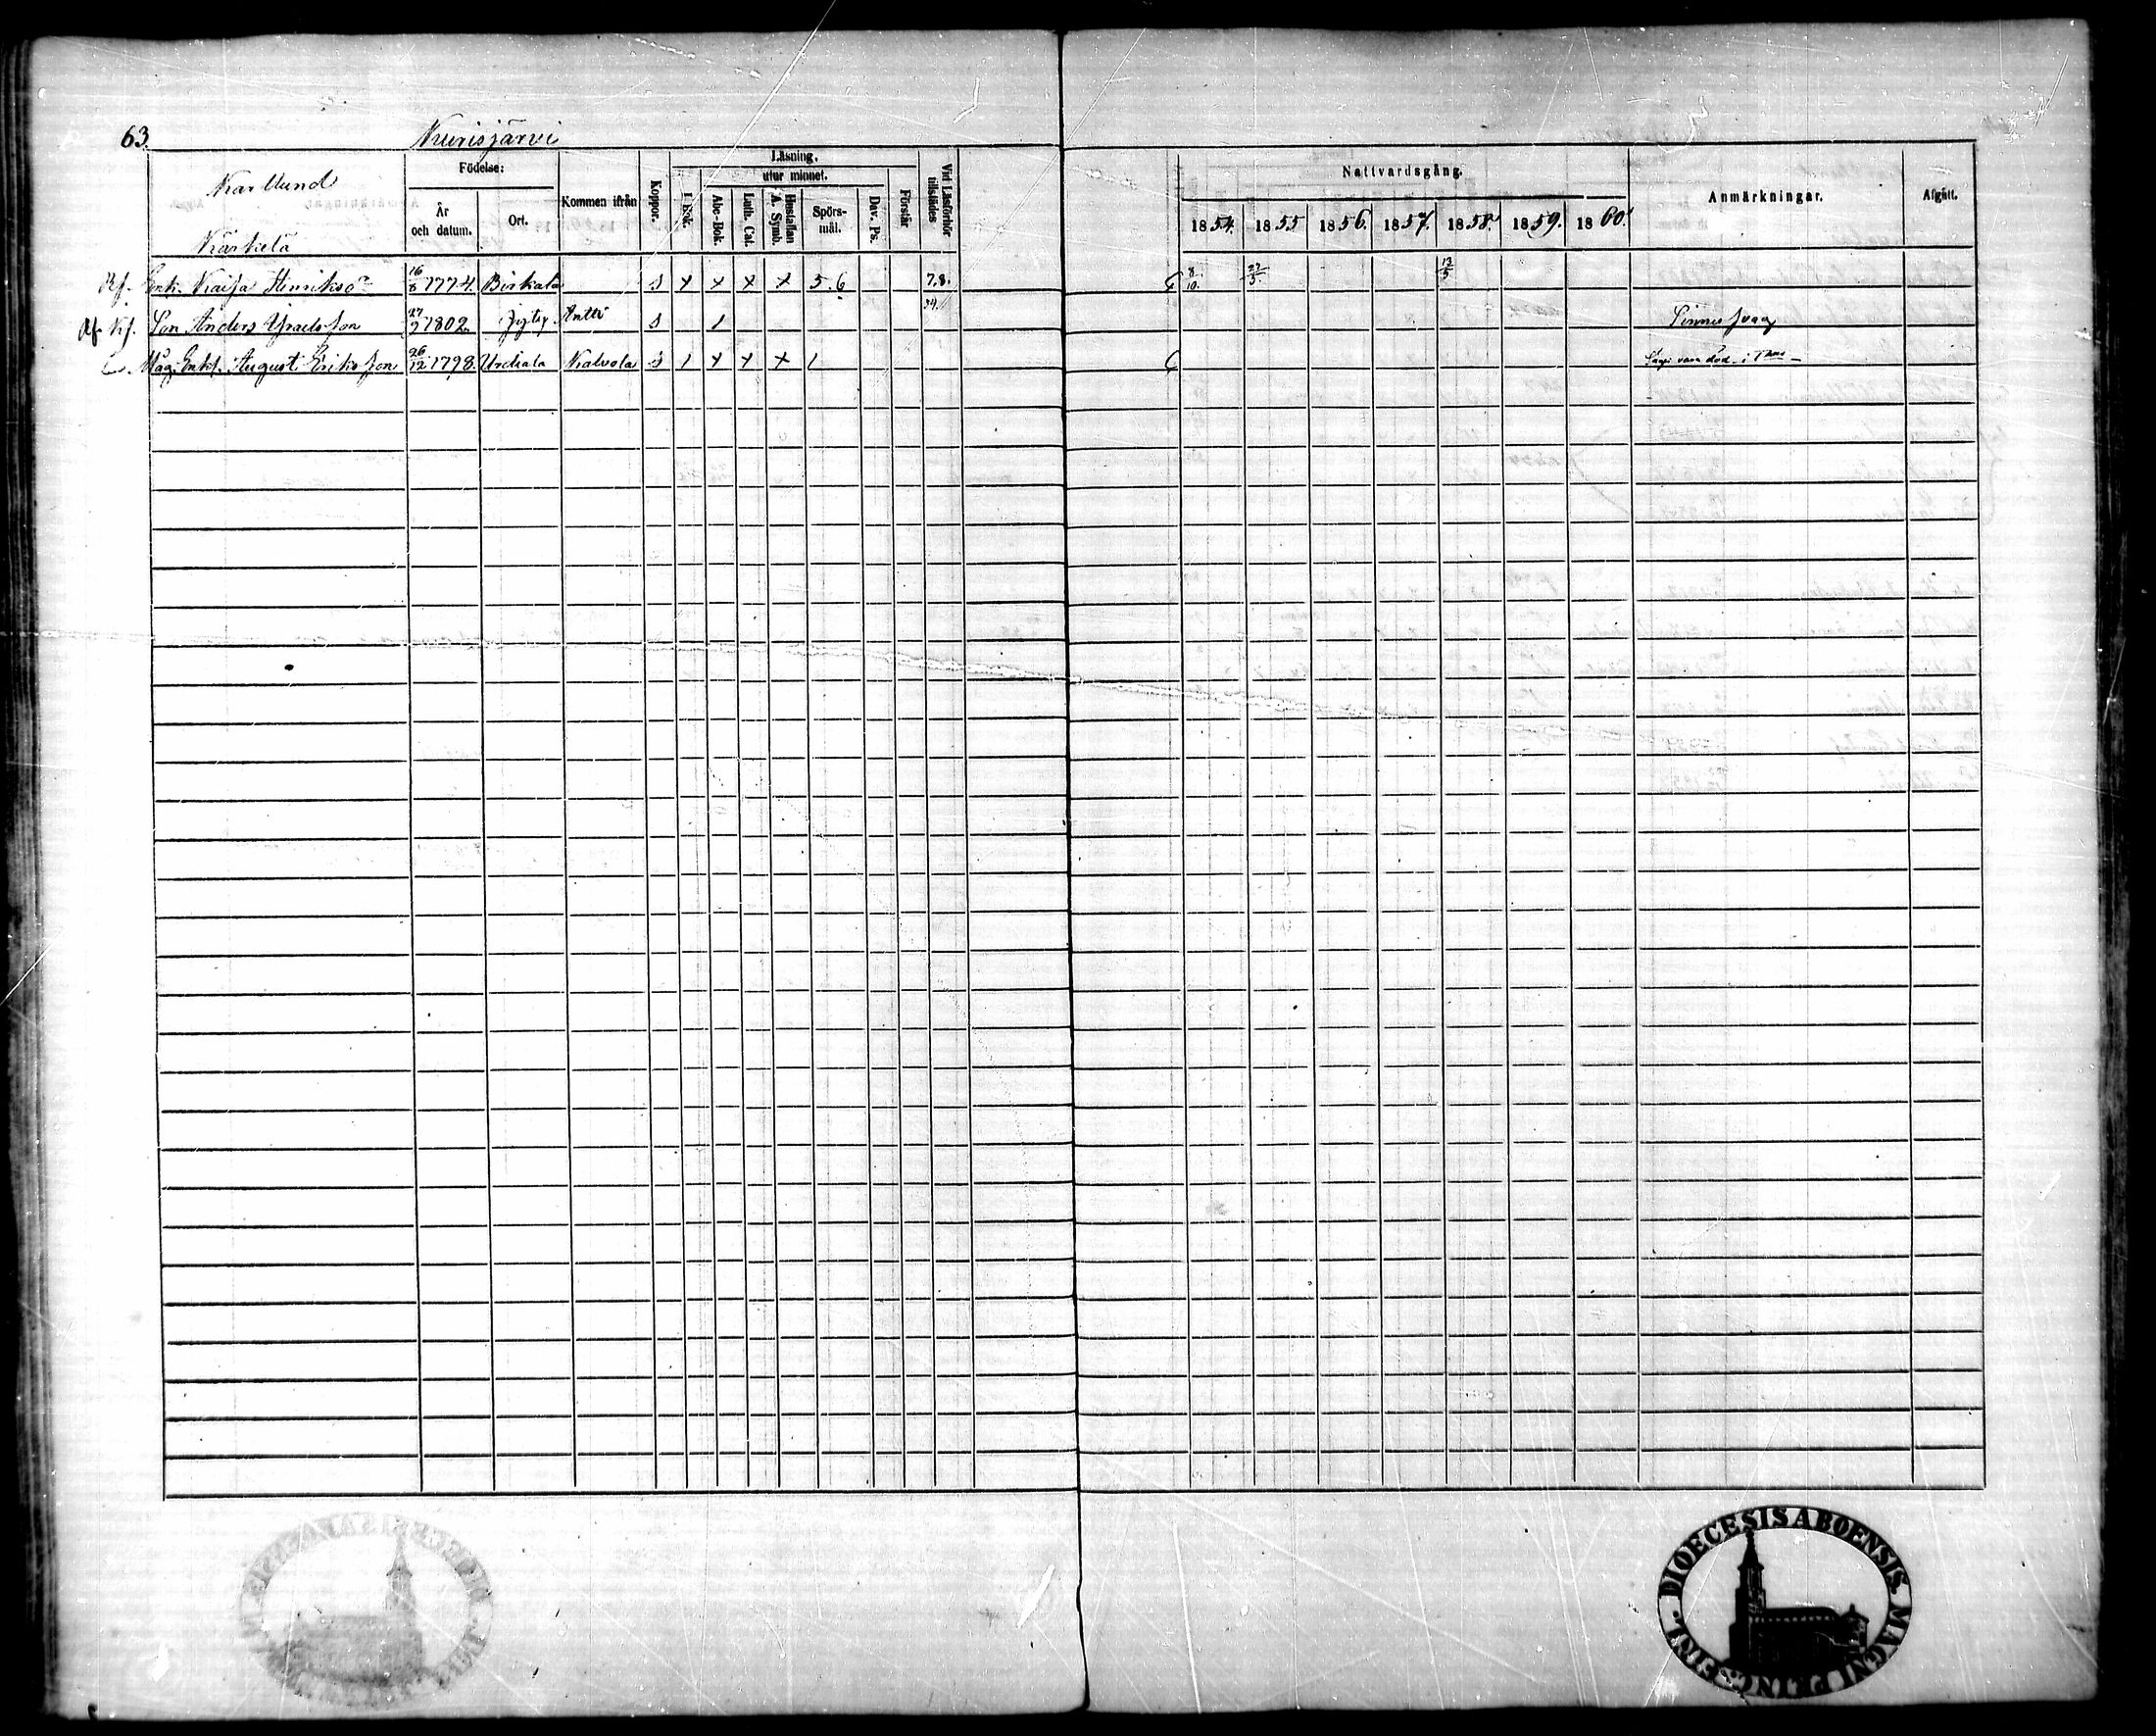 63.
Nuurisjärvi
Karllund
Kärkelä
Födelse:
År och datum.
Ort.
Kommen ifrån
Koppor.
Läsning,
utur minnet.
I Bok.
Abc-Bok.
Luth. Cat.
Hustaflan A. Symb.
Spörs-mål.
Dav. Ps.
Förstår
Vid Läsförhör tillstädes
Nattvardsgång.
1854. 1855 1856. 1857. 1858. 1859. 1860.
Anmärkningar.
Afgått.
Enk. Kaisa Henriksdr 16/8 1774. Birkala s x x x x 5.6 7.8. 8/10. 27/5. 13/5
Son Anders Yraelsson 27/9 1802 Antti s 1 Sinnessvag
Måg Enkl. August Eriksson 26/12 1798. Urdiala Kalvola s 1 x x x 1 vara död i
FINL. DIOECESIS ABOENSIS MAGNI PRINC.